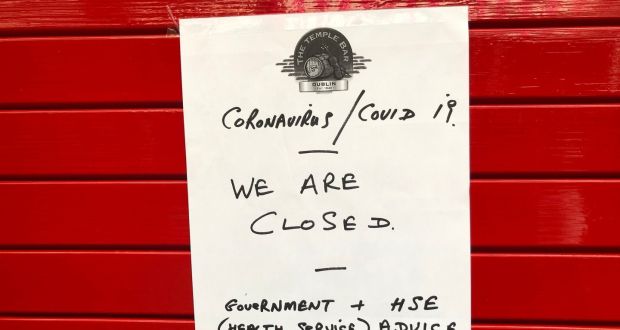 THE TEMPLE BAR
DUBLIN
CORONAVIRUS / COVID 19.
WE ARE
CLOSED.
GOVERNMENT + HSE
(HEALTH SERVICE) ADVICE